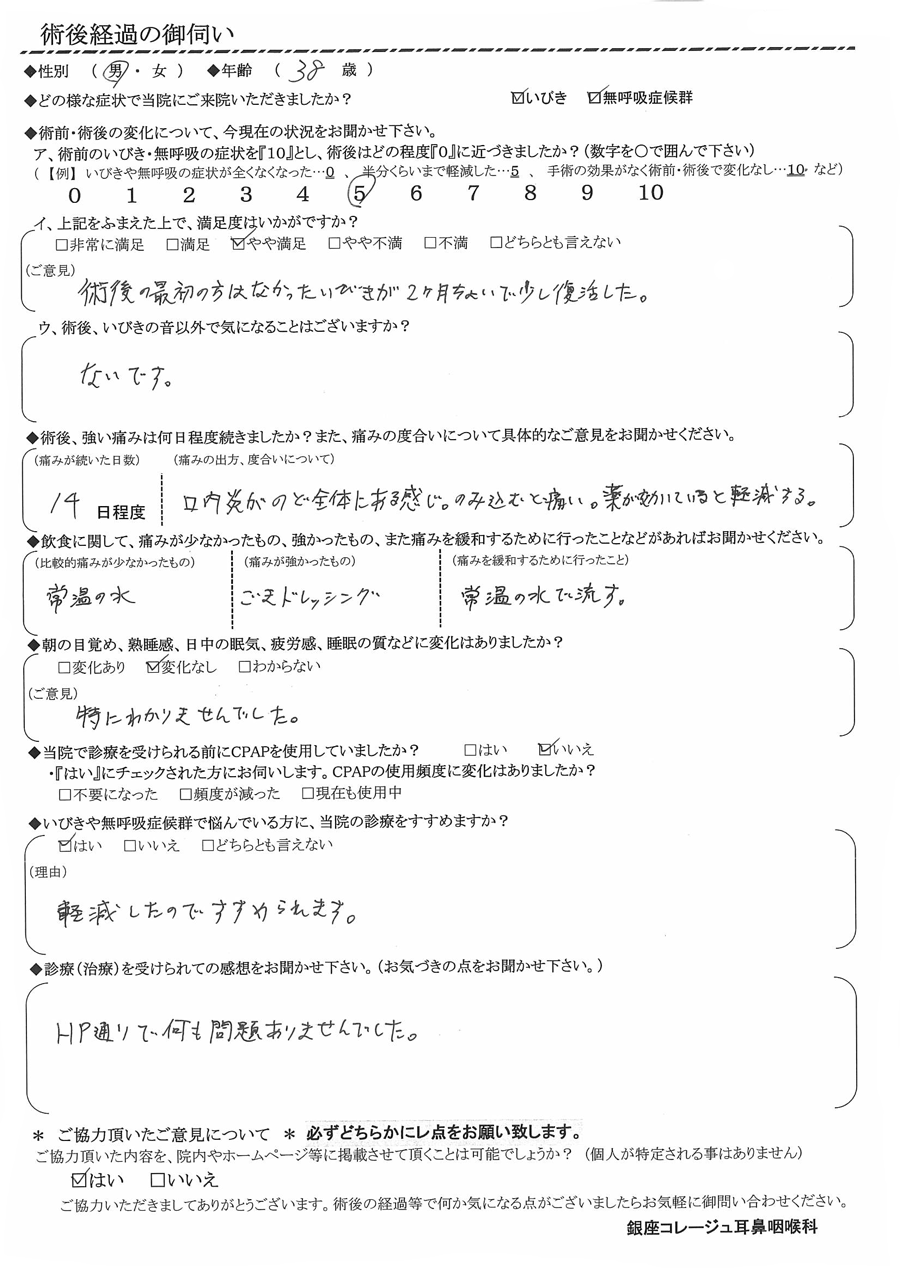 術後経過の御伺い
◆性別 (男・女) ◆年齢 (38 歳)
◆どの様な症状で当院にご来院いただきましたか? ☑いびき ☑無呼吸症候群
◆術前・術後の変化について、今現在の状況をお聞かせ下さい。
ア、術前のいびき・無呼吸の症状を『10』とし、術後はどの程度『0』に近づきましたか?(数字を〇で囲んで下さい)
(【例】 いびきや無呼吸の症状が全くなくなった…0 、 半分くらいまで軽減した…5 、 手術の効果がなく術前・術後で変化なし…10 など)
0 1 2 3 4 5 6 7 8 9 10
イ、上記をふまえた上で、満足度はいかがですか?
□非常に満足 □満足 ☑やや満足 □やや不満 □不満 □どちらとも言えない
(ご意見)
術後の最初の方はなかったいびきが2ヶ月ちょいで少し復活した。
ウ、術後、いびきの音以外で気になることはございますか?
ないです。
◆術後、強い痛みは何日程度続きましたか?また、痛みの度合いについて具体的なご意見をお聞かせください。
(痛みが続いた日数) (痛みの出方、度合いについて)
14 日程度 口内炎がのど全体にある感じ。のみ込むと痛い。薬が効いていると軽減する。
◆飲食に関して、痛みが少なかったもの、強かったもの、また痛みを緩和するために行ったことなどがあればお聞かせください。
(比較的痛みが少なかったもの) (痛みが強かったもの) (痛みを緩和するために行ったこと)
常温の水 ごまドレッシング 常温の水で流す。
◆朝の目覚め、熟睡感、日中の眠気、疲労感、睡眠の質などに変化はありましたか?
□変化あり ☑変化なし □わからない
(ご意見)
特にわかりませんでした。
◆当院で診療を受けられる前にCPAPを使用していましたか? □はい ☑いいえ
・『はい』にチェックされた方にお伺いします。CPAPの使用頻度に変化はありましたか?
□不要になった □頻度が減った □現在も使用中
◆いびきや無呼吸症候群で悩んでいる方に、当院の診療をすすめますか?
☑はい □いいえ □どちらとも言えない
(理由)
軽減したのですすめられます。
◆診療(治療)を受けられての感想をお聞かせ下さい。(お気づきの点をお聞かせ下さい。)
HP通りで何も問題ありませんでした。
* ご協力頂いたご意見について * 必ずどちらかにレ点をお願い致します。
ご協力頂いた内容を、院内やホームページ等に掲載させて頂くことは可能でしょうか? (個人が特定される事はありません)
☑はい □いいえ
ご協力いただきましてありがとうございます。術後の経過等で何か気になる点がございましたらお気軽に御問い合わせください。
銀座コレージュ耳鼻咽喉科